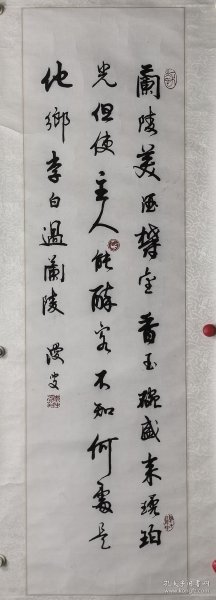 蘭陵美酒欝金香玉碗盛来琥珀
光但使主人能醉客不知何處是
他鄉 李白過蘭陵